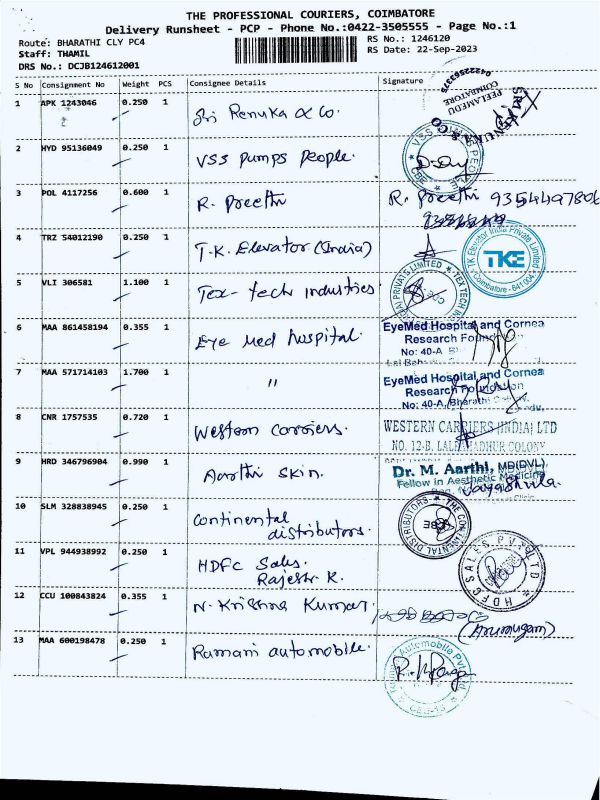 THE PROFESSIONAL COURIERS, COIMBATORE
Delivery Runsheet - PCP - Phone No.:0422-3505555 - Page No.:1
Route: BHARATHI CLY PC4
Staff: THAMIL
DRS No.: DCJB124612001
RS No.: 1246120
RS Date: 22-Sep-2023
S No Consignment No Weight PCS Consignee Details Signature
1 APK 1243046 0.250 1 Sri Renuka & Co.
PEELAMEDU
COIMBATORE
2 HYD 95136049 0.250 1 VSS Pumps People.
3 POL 4117256 0.600 1 R. Preethi R. Preethi
4 TRZ 54012190 0.250 1 T.K. Elevator (India)
TK Elevator India Private Limited
TKE
Coimbatore - 641 004
5 VLI 306581 1.100 1 Tex-tech industries
6 MAA 861458194 0.355 1 Eye Med hospital.
EyeMed Hospital and Cornea
Research Foundation
No: 40-A
7 MAA 571714103 1.700 1 "
EyeMed Hospital and Cornea
Research Foundation
No: 40-A, Bharathi
8 CNR 1757535 0.720 1 Western carriers.
WESTERN CARRIERS (INDIA) LTD
NO. 12-B, LALBAHADHUR COLONY
9 HRD 346796904 0.990 1 Aarthi Skin.
Dr. M. Aarthi, MD(DVL),
Fellow in Aesthetic Medicine
10 SLM 328838945 0.250 1 Continental
distributors.
THE CONTINENTAL DISTRIBUTORS
CBE
11 VPL 944938992 0.250 1 HDFC Sales.
Rajesh K.
HDFC SALES PVT LTD
12 CCU 100843824 0.355 1 N. Krishna Kumar
(Arumugam)
13 MAA 600198478 0.250 1 Ramani automobile.
Automobile Pvt Ltd